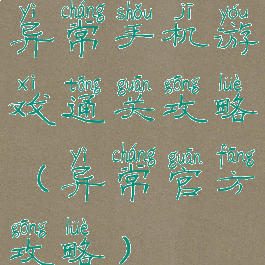 yì cháng shǒu jī yóu
异常手机游
xì tōng guān gōng lüè
戏通关攻略
yì cháng guān fāng
（异常官方
gōng lüè
攻略）